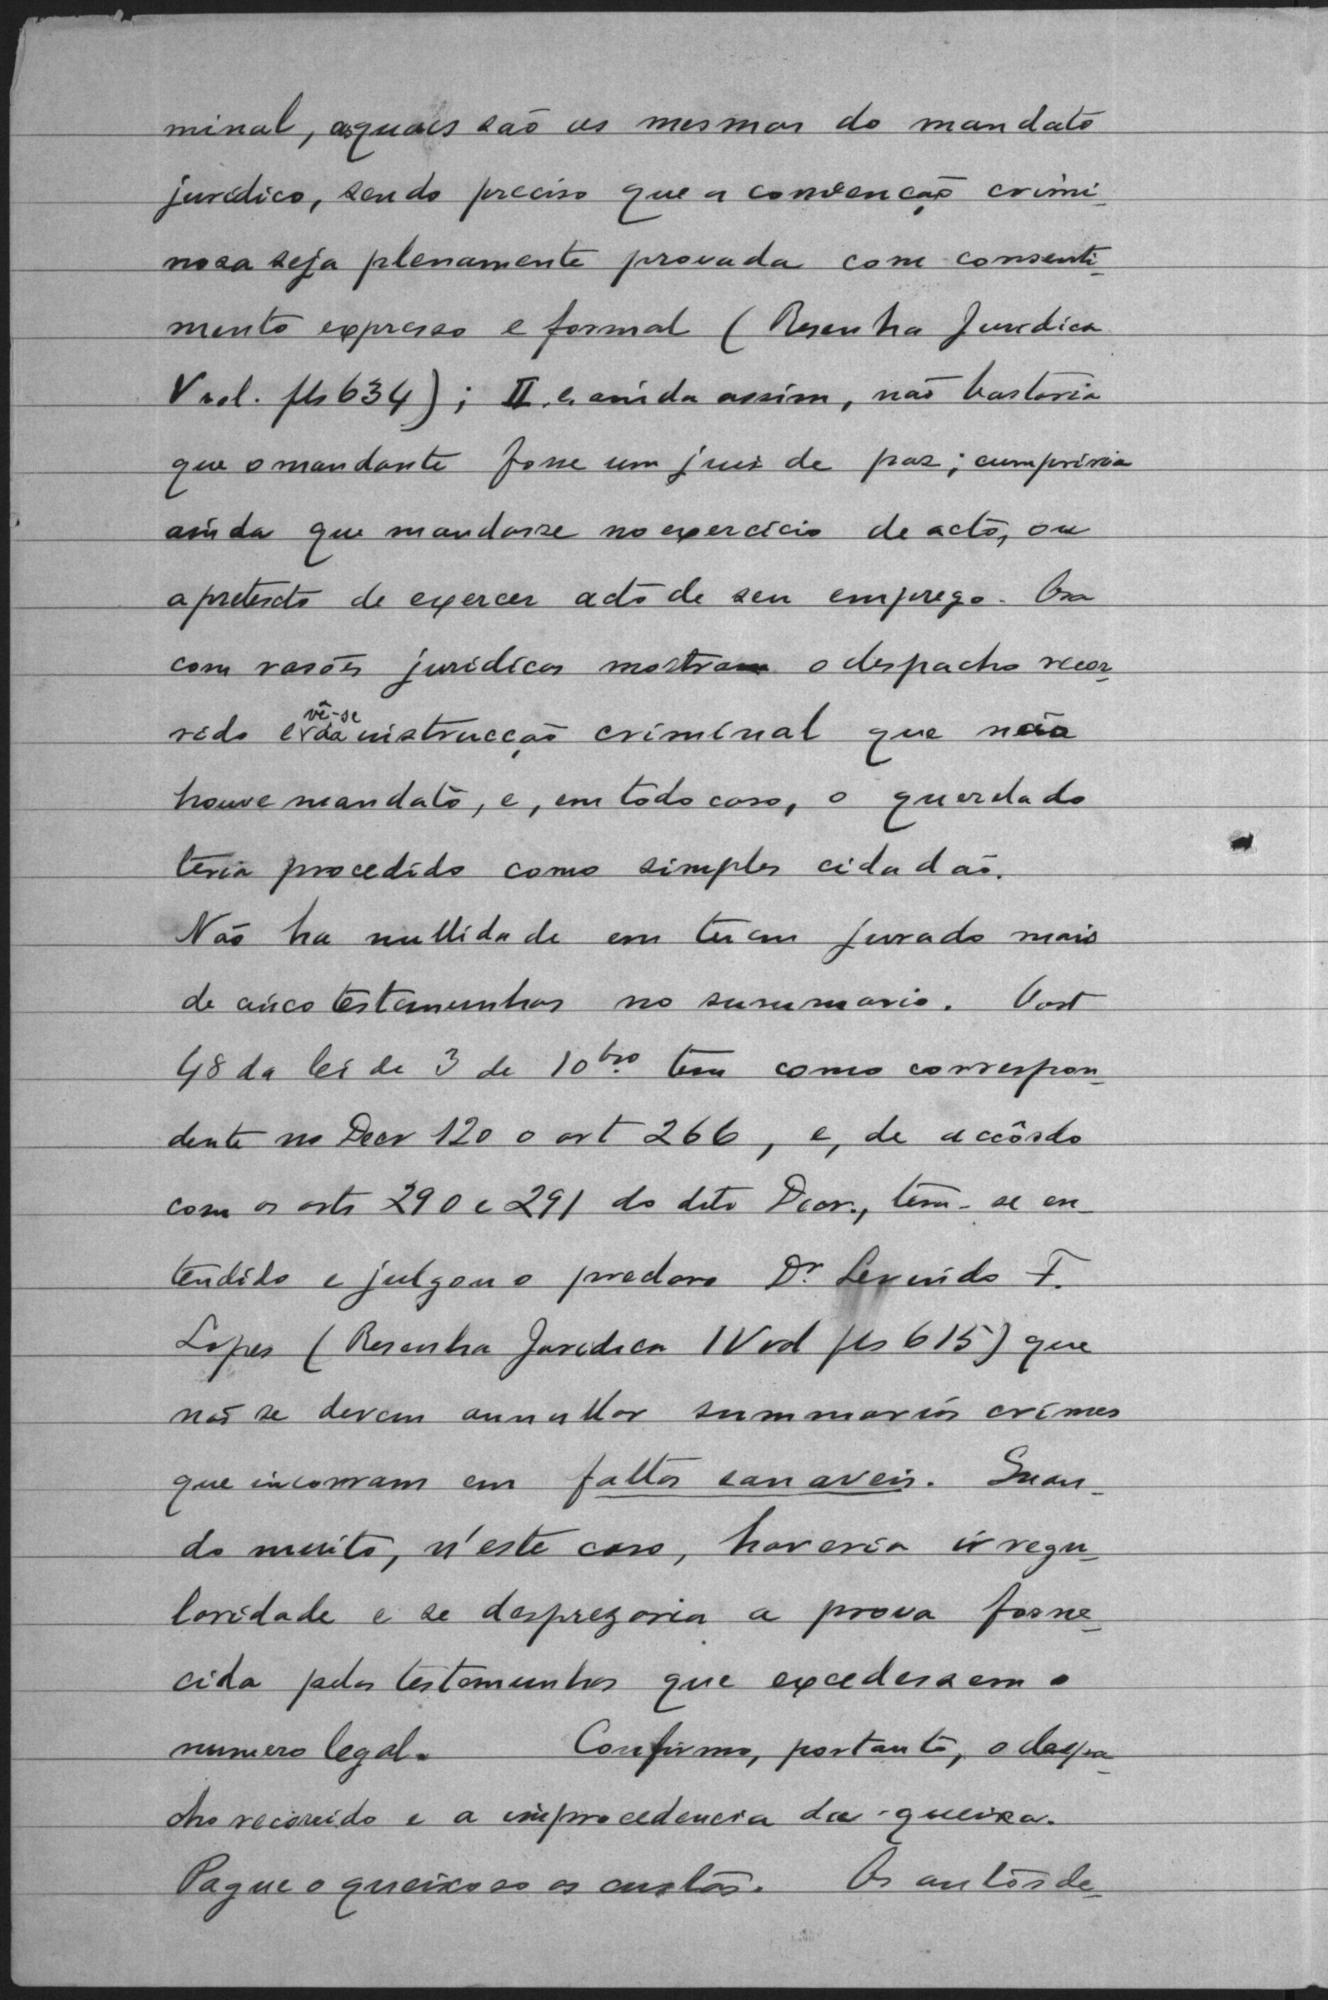 minal, as quaes são as mesmas do mandato
juridico, sendo preciso que a convenção crimi-
nosa seja plenamente provada com consenti-
mento expresso e formal (Resenha Juridica
V vol. fls 634); II e, ainda assim, não bastaria
que o mandante fosse um juiz de paz; cumpriria
ainda que mandasse no exercicio de acto, ou
a pretexto de exercer acto de seu emprego. Ora
com rasões juridicas mostra o despacho recor-
rido e vê-se da instrucção criminal que não
houve mandato, e, em todo caso, o querelado
teria procedido como simples cidadão.
Não ha nullidade em terem jurado mais
de cinco testemunhas no summario. O art
48 da lei de 3 de 10bro tem como correspon-
dente no Decr 120 o art 266, e, de accôrdo
com os arts 290 e 291 do dito Decr., tem-se en-
tendido e julgou o preclaro Dr. Levindo F.
Lopes (Resenha Juridica IV vol fls 615) que
não se devem annullar summarios crimes
que incorram em faltas sanaveis. Quan-
do muito, n'este caso, haveria irregu-
laridade e se despresaria a prova forne-
cida pelas testemunhas que excedessem o
numero legal. Confirmo, portanto, o despa-
cho recorrido e a improcedencia da queixa.
Pague o queixoso as custas. Os autos de-